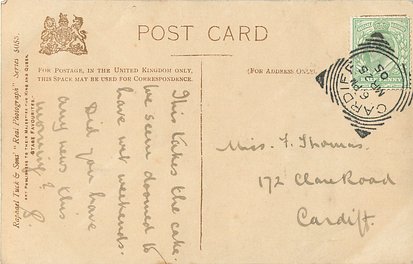 POST CARD
FOR POSTAGE, IN THE UNITED KINGDOM ONLY,
THIS SPACE MAY BE USED FOR CORRESPONDENCE.
(FOR ADDRESS ONLY.)
Raphael Tuck & Sons' "Real Photograph" Series
ART PUBLISHERS TO THEIR MAJESTIES THE KING AND QUEEN.
STAGE FAVOURITES.
This takes the cake.
We seem doomed to
have wet weekends.
Did you have
any news this
morning?
CARDIFF
MR
05
Miss. Thomas.
172 Clare Road
Cardiff.